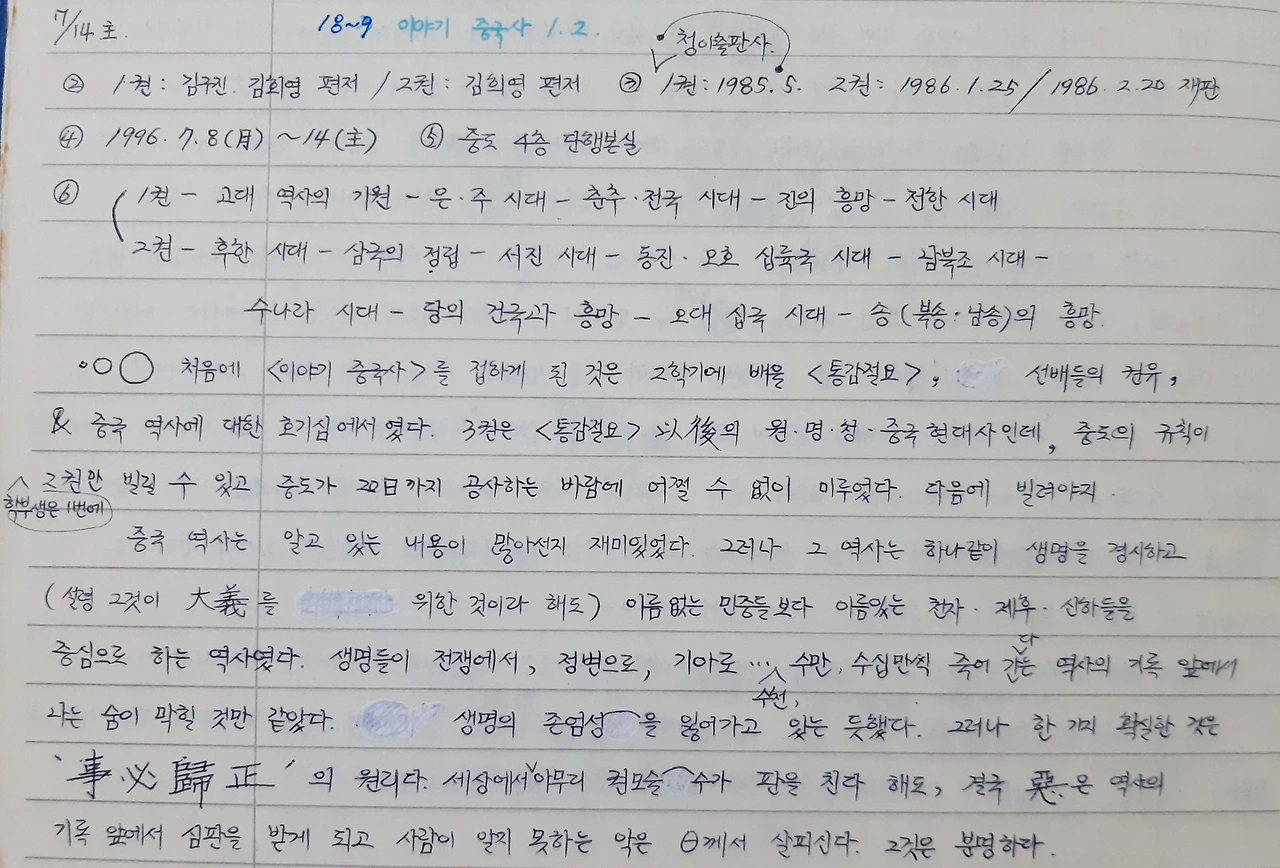 7/14 主.
18~9 이야기 중국사 1. 2.
청이출판사.
② 1권: 김구진. 김희영 편저 / 2권: 김희영 편저 ③ 1권: 1985. 5. 2권: 1986. 1. 25 / 1986. 2. 20 재판
④ 1996. 7. 8(月) ~ 14(主) ⑤ 중도 4층 단행본실
⑥ 1권 - 고대 역사의 기원 - 은·주 시대 - 춘추·전국 시대 - 진의 흥망 - 전한 시대
2권 - 후한 시대 - 삼국의 정립 - 서진 시대 - 동진·오호 십육국 시대 - 남북조 시대 -
수나라 시대 - 당의 건국과 흥망 - 오대 십국 시대 - 송(북송·남송)의 흥망.
처음에 <이야기 중국사>를 접하게 된 것은 2학기에 배울 <통감절요>, 선배들의 권유,
& 중국 역사에 대한 호기심에서였다. 3권은 <통감절요> 以後의 원·명·청·중국현대사인데, 중도의 규칙이
2권만 빌릴 수 있고 중도가 20日까지 공사하는 바람에 어쩔 수 없이 미루었다. 다음에 빌려야지.
학부생은 1번에
중국 역사는 알고 있는 내용이 많아선지 재미있었다. 그러나 그 역사는 하나같이 생명을 경시하고
(설령 그것이 大義를 위한 것이라 해도) 이름없는 민중들보다 이름있는 천자·제후·신하들을
중심으로 하는 역사였다. 생명들이 전쟁에서, 정변으로, 기아로 … 수천, 수만, 수십만씩 죽어 간다는 역사의 기록 앞에서
나는 숨이 막힐 것만 같았다. 생명의 존엄성을 잃어가고 있는 듯했다. 그러나 한 가지 확실한 것은
'事必歸正'의 원리다. 세상에서 아무리 권모술수가 판을 친다 해도, 결국 惡은 역사의
기록 앞에서 심판을 받게 되고 사람이 알지 못하는 악은 θ께서 살피신다. 그것은 분명하다.